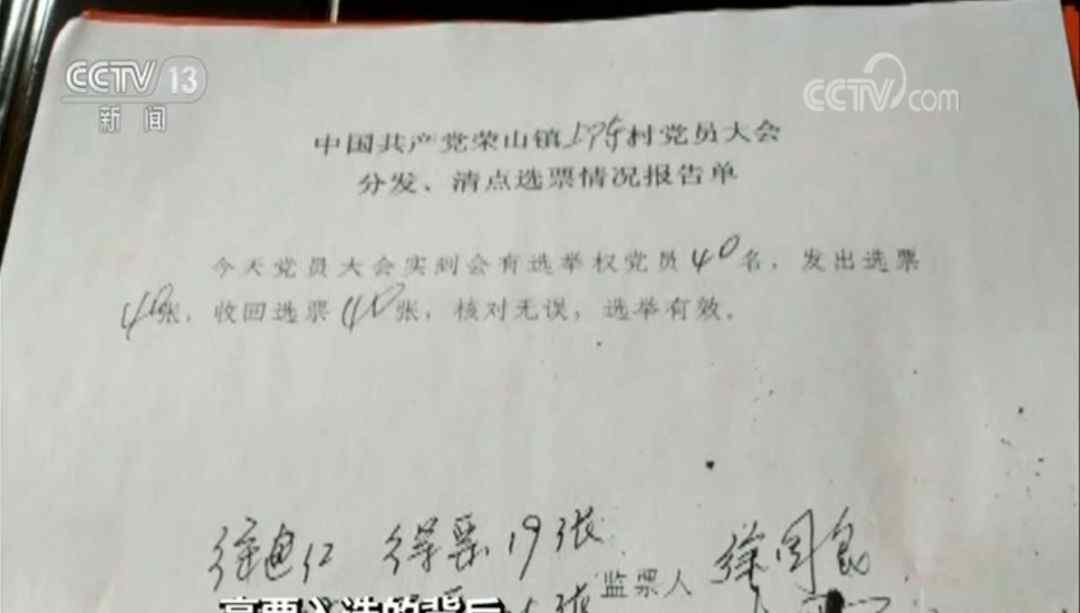 CCTV 13
新闻
CCTV.com
中国共产党荣山镇上坪村党员大会
分发、清点选票情况报告单
今天党员大会实到会有选举权党员40名，发出选票
40张，收回选票40张，核对无误，选举有效。
徐迪仁 得票19张
监票人 徐国良
高票入选的背后